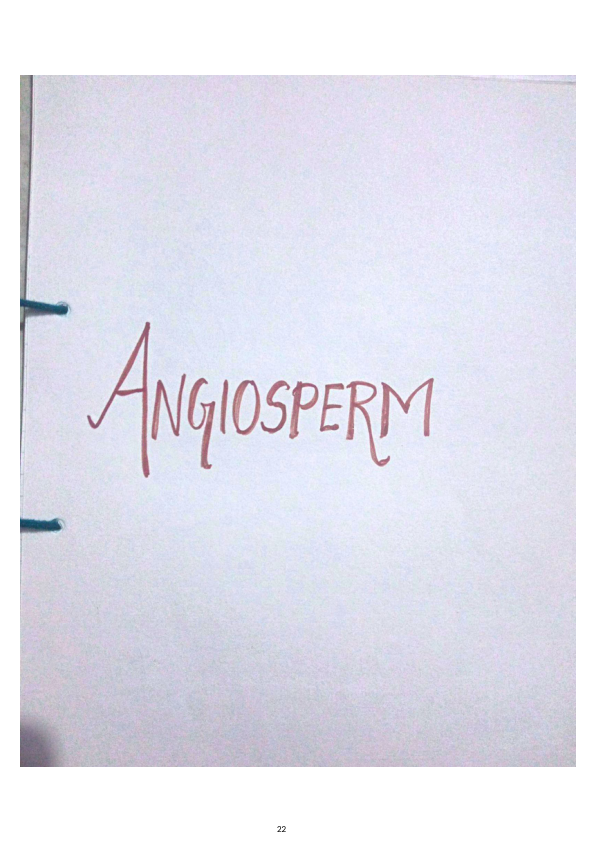 ANGIOSPERM
22